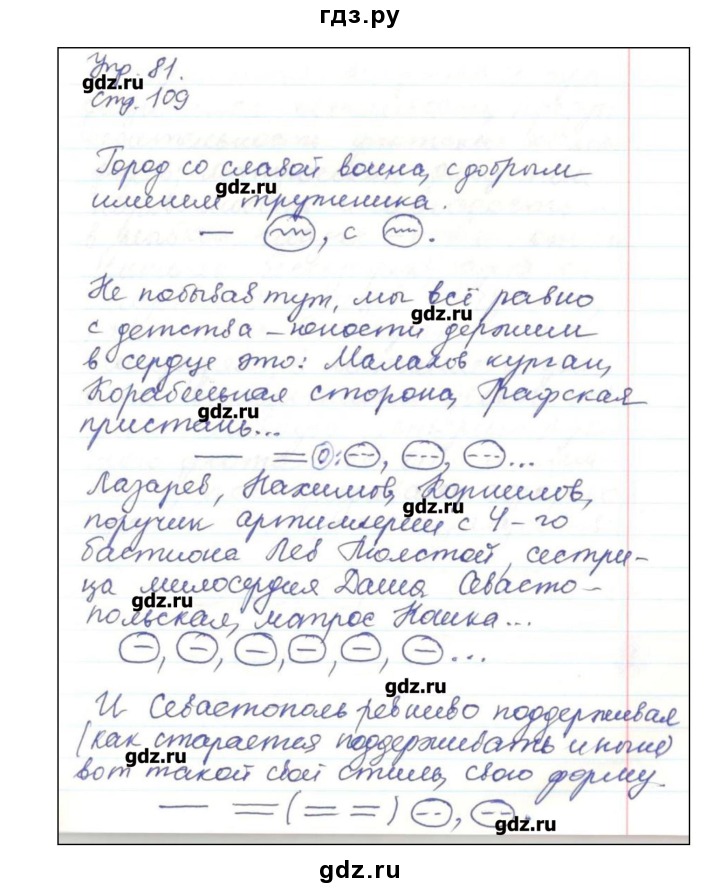 гдз.ру
Упр. 81.
gdz.ru
стр. 109
Город со славой воина, с добрым
gdz.ru
именем труженика.
— , с .
Не побывав тут, мы всё равно
gdz.ru
с детства – юности держим
в сердце это: Малахов курган,
Корабельная сторона, Графская
gdz.ru
пристань...
— = О: , , ...
Лазарев, Нахимов, Корнилов,
gdz.ru
поручик артиллерии с 4-го
бастиона Лев Толстой, сестри-
ца милосердия Даша Севасто-
gdz.ru
польская, матрос Кошка...
, , , , , ...
gdz.ru
И Севастополь ревниво поддерживал
(как старается поддерживать и ныне)
gdz.ru
вот такой свой стиль, свою форму.
— = ( = = ) , .
gdz.ru
gdz.ru